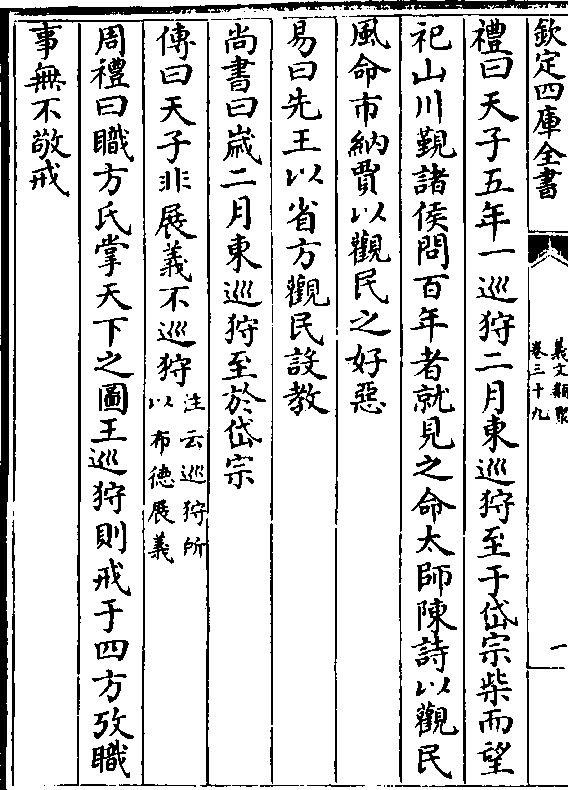 欽定四庫全書
藝文類聚
卷三十九
一
禮曰天子五年一巡狩二月東巡狩至于岱宗柴而望
祀山川覲諸侯問百年者就見之命太師陳詩以觀民
風命市納賈以觀民之好惡
易曰先王以省方觀民設教
尚書曰歲二月東巡狩至於岱宗
傳曰天子非展義不巡狩注云巡狩所以布德展義
周禮曰職方氏掌天下之圖王巡狩則戒于四方攷職
事無不敬戒